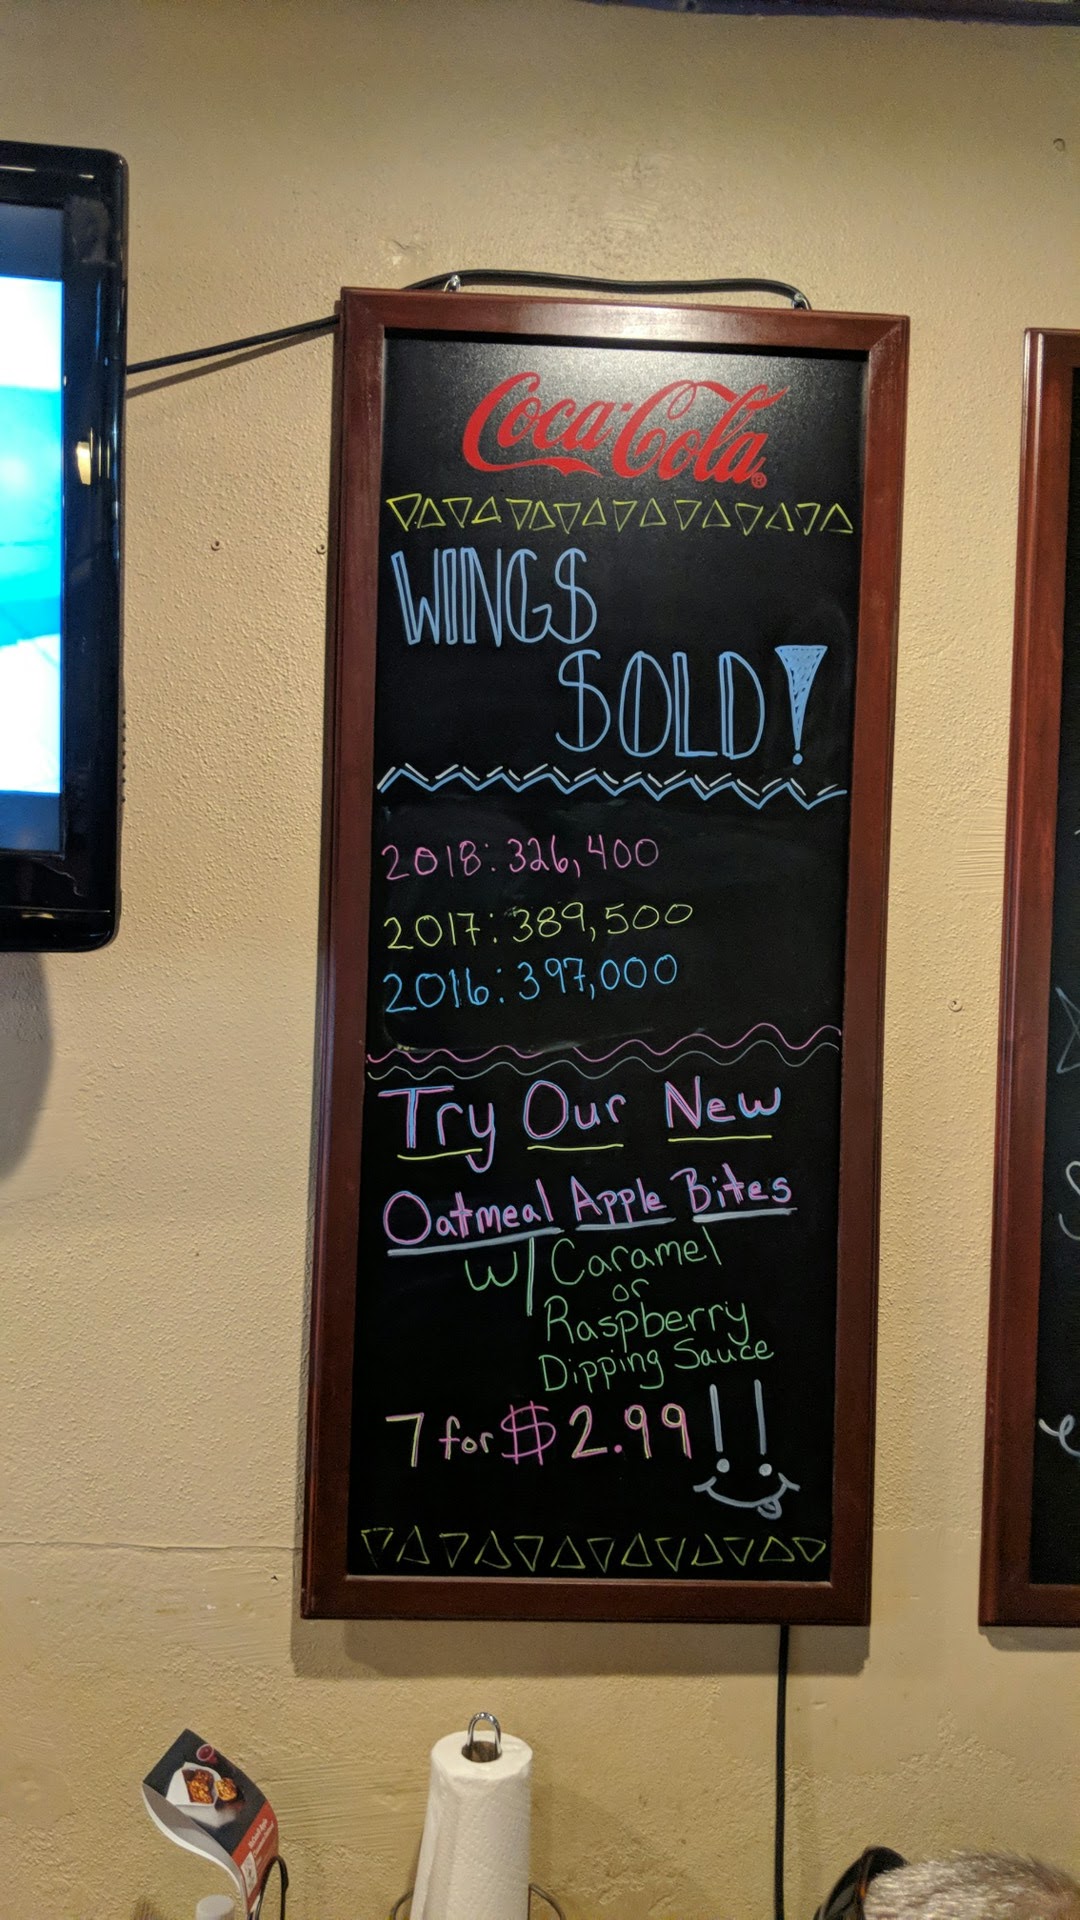 Coca-Cola
WINGS
SOLD!
2018: 326,400
2017: 389,500
2016: 397,000
Try Our New
Oatmeal Apple Bites
w/ Caramel
or
Raspberry
Dipping Sauce
7 for $2.99!!